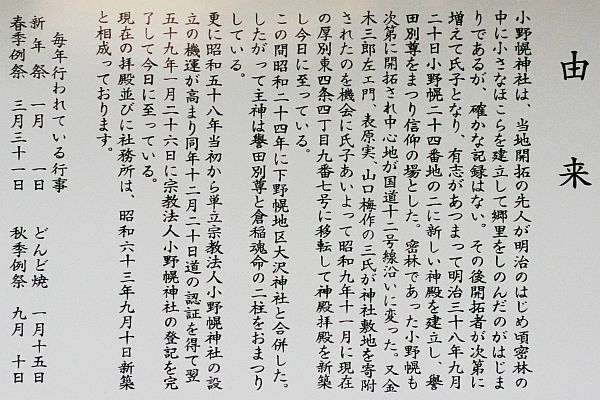 由来
小野幌神社は、当地開拓の先人が明治のはじめ頃密林の
中に小さなほこらを建立して郷里をしのんだのがはじま
りであるが、確かな記録はない。その後開拓者が次第に
増えて氏子となり、有志があつまって明治三十八年九月
二十日小野幌二十四番地の二に新しい神殿を建立し、誉
田別尊をまつり信仰の場とした。密林であった小野幌も
次第に開拓され中心地が国道十二号線沿いに変った。又金
木三郎左ェ門、表原実、山口梅作の三氏が神社敷地を寄附
されたのを機会に氏子あいよって昭和九年十一月に現在
の厚別東四条四丁目九番七号に移転して神殿拝殿を新築
し今日に至っている。
この間昭和二十四年に下野幌地区大沢神社と合併した。
したがって主神は誉田別尊と倉稲魂命の二柱をおまつり
している。
更に昭和五十八年当初から単立宗教法人小野幌神社の設
立の機運が高まり同年十二月二十日道の認証を得て翌
五十九年一月二十六日に宗教法人小野幌神社の登記を完
了して今日に至っている。
現在の拝殿並びに社務所は、昭和六十三年九月十日新築
と相成っております。
毎年行われている行事
新年祭 一月一日 どんど焼 一月十五日
春季例祭 三月三十一日 秋季例祭 九月十日